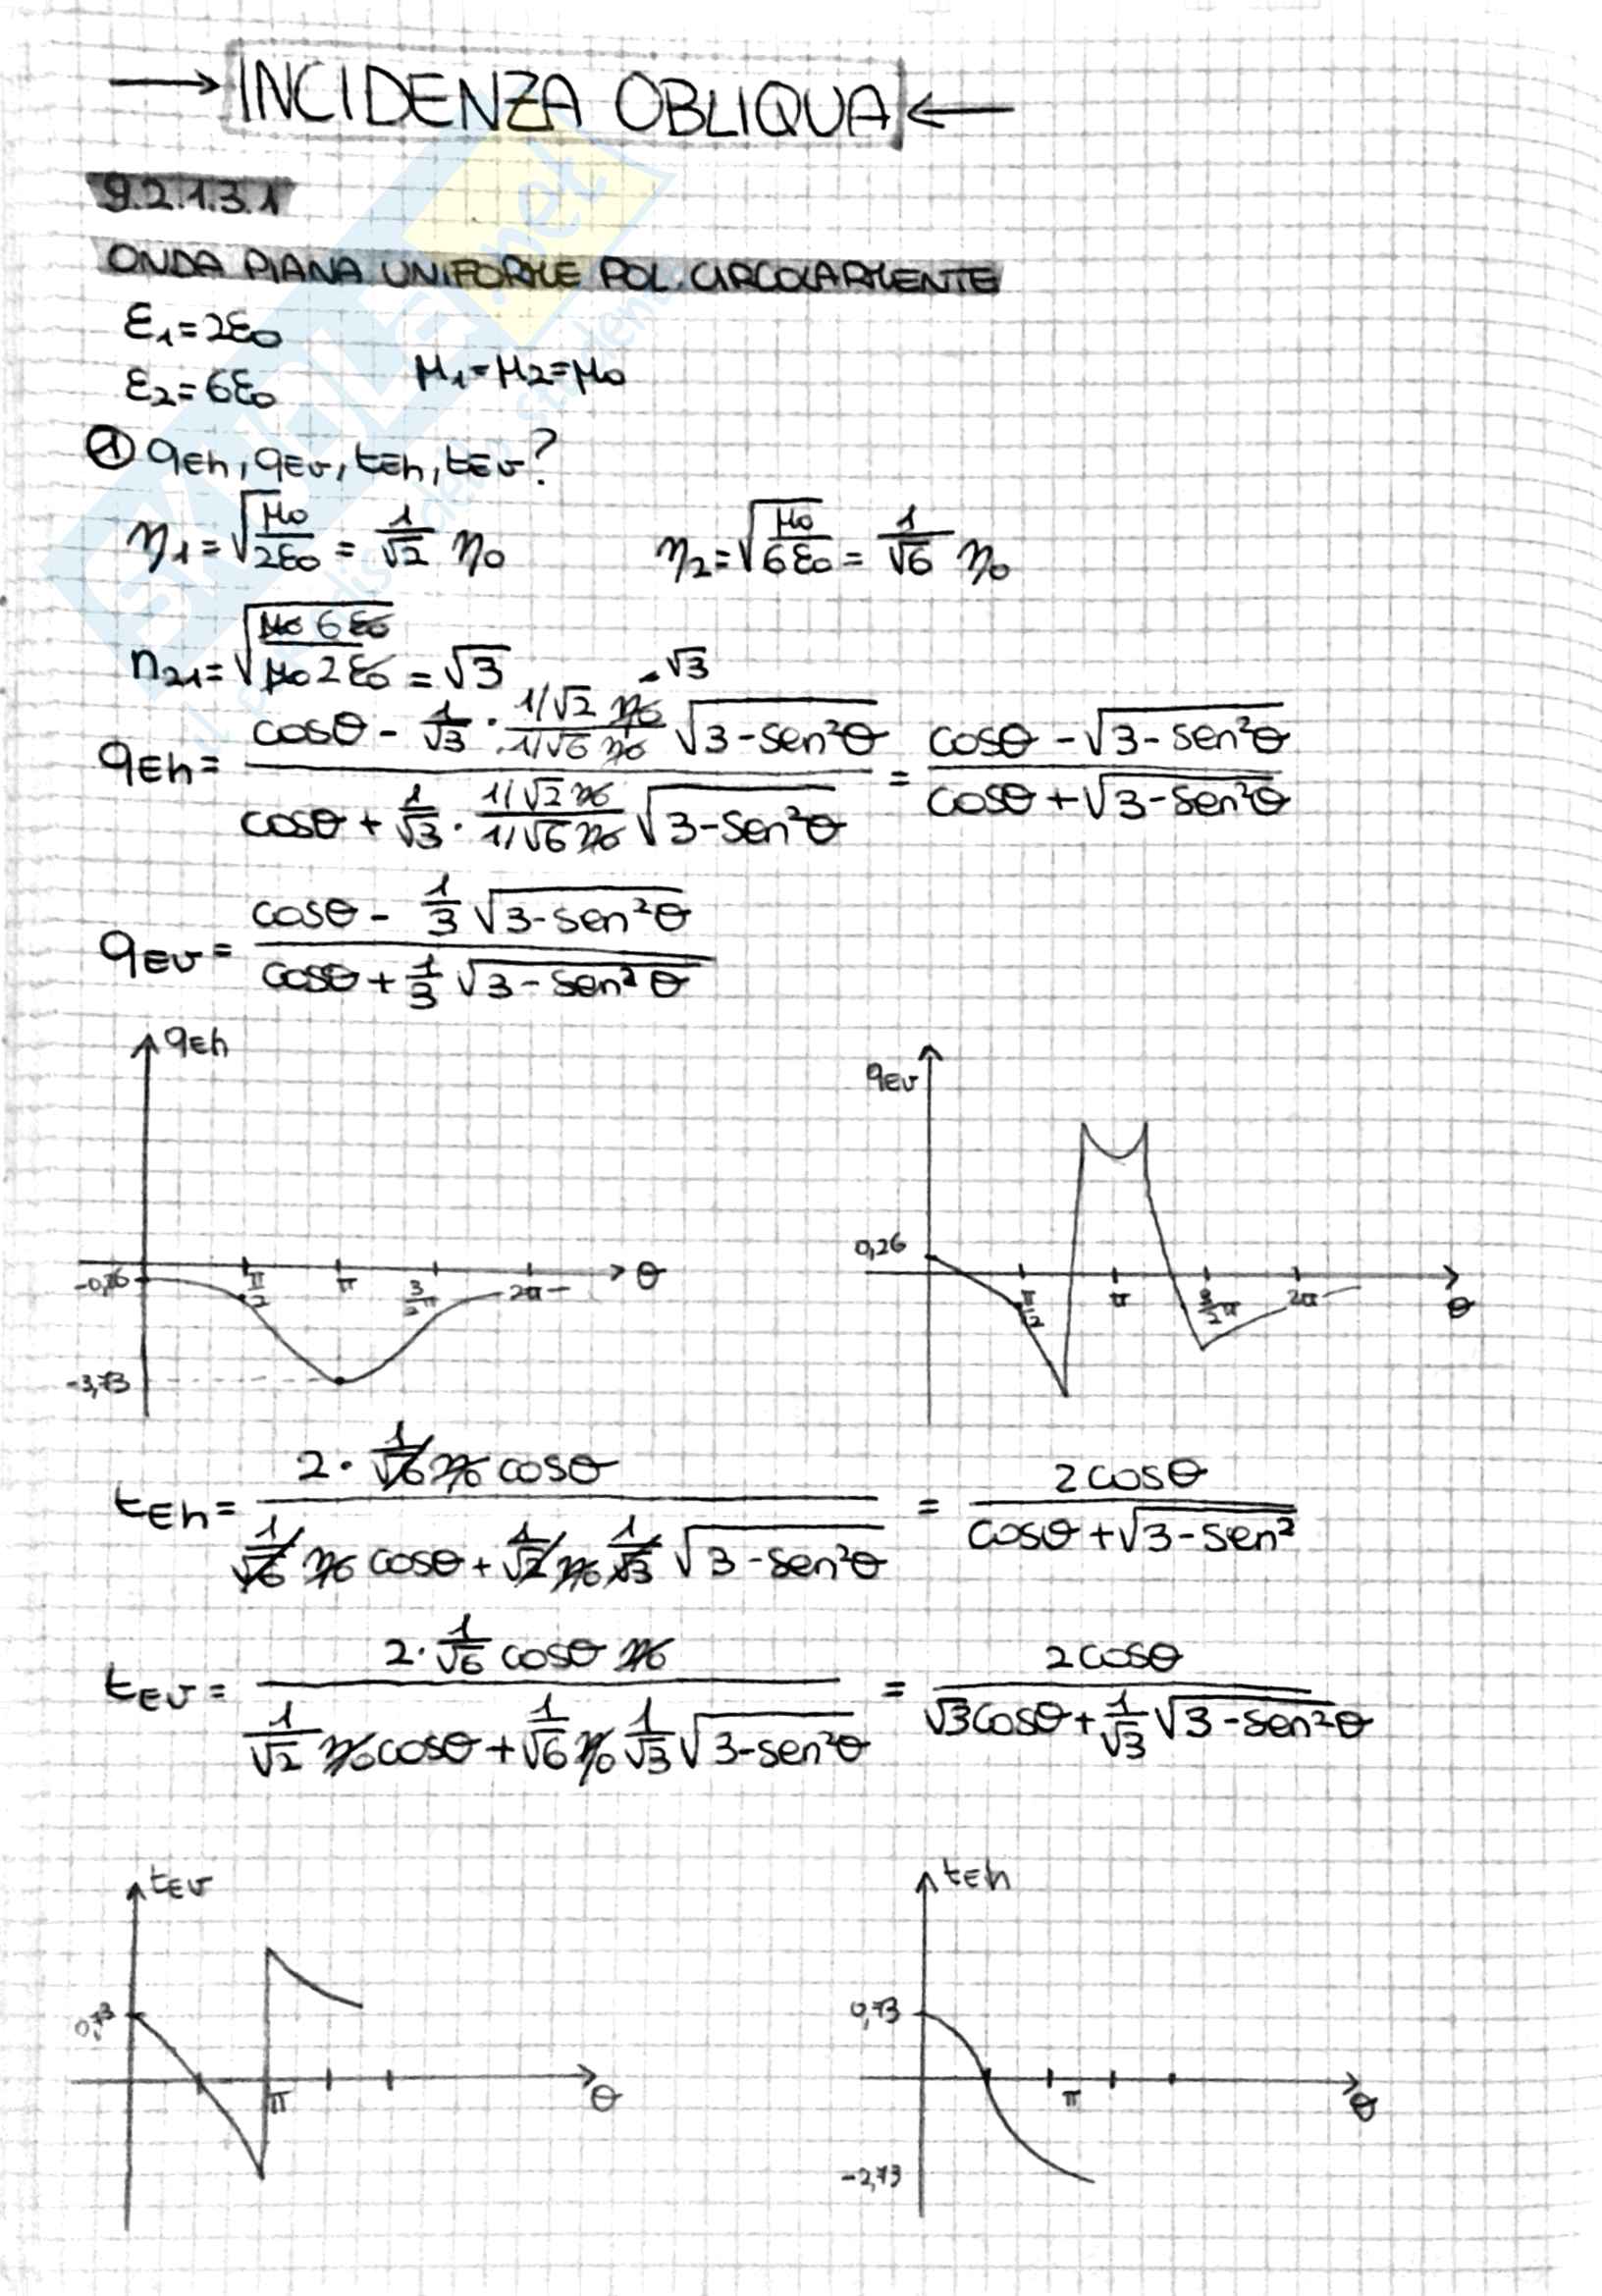 → INCIDENZA OBLIQUA ←
9.2.1.3.1
ONDA PIANA UNIFORME POL. CIRCOLARMENTE
ε₁=2ε₀
ε₂=6ε₀ μ₁=μ₂=μ₀
① qEh, qEv, tEh, tEv?
η₁=√(μ₀/2ε₀) = 1/√2 η₀ η₂=√(μ₀/6ε₀) = 1/√6 η₀
n₂₁=√(μ₀6ε₀/μ₀2ε₀) = √3
qEh= (cosθ - 1/√3 · (1/√2 η₀)/(1/√6 η₀) √(3-sen²θ)) / (cosθ + 1/√3 · (1/√2 η₀)/(1/√6 η₀) √(3-sen²θ)) = (cosθ - √(3-sen²θ)) / (cosθ + √(3-sen²θ))
=√3
qEv= (cosθ - 1/3 √(3-sen²θ)) / (cosθ + 1/3 √(3-sen²θ))
qEh
-0,26
-3,73
π/2 π 3/2π 2π θ
qEv
0,26
π/2 π 3/2π 2π θ
tEh= (2 · 1/√6 η₀ cosθ) / (1/√6 η₀ cosθ + 1/√2 η₀ 1/√3 √(3-sen²θ)) = 2cosθ / (cosθ + √(3-sen²))
tEv= (2 · 1/√6 cosθ η₀) / (1/√2 η₀ cosθ + 1/√6 η₀ 1/√3 √(3-sen²θ)) = 2cosθ / (√3cosθ + 1/√3 √(3-sen²θ))
tEv
0,73
π θ
tEh
0,73
π θ
-2,73
SKUOLA.net